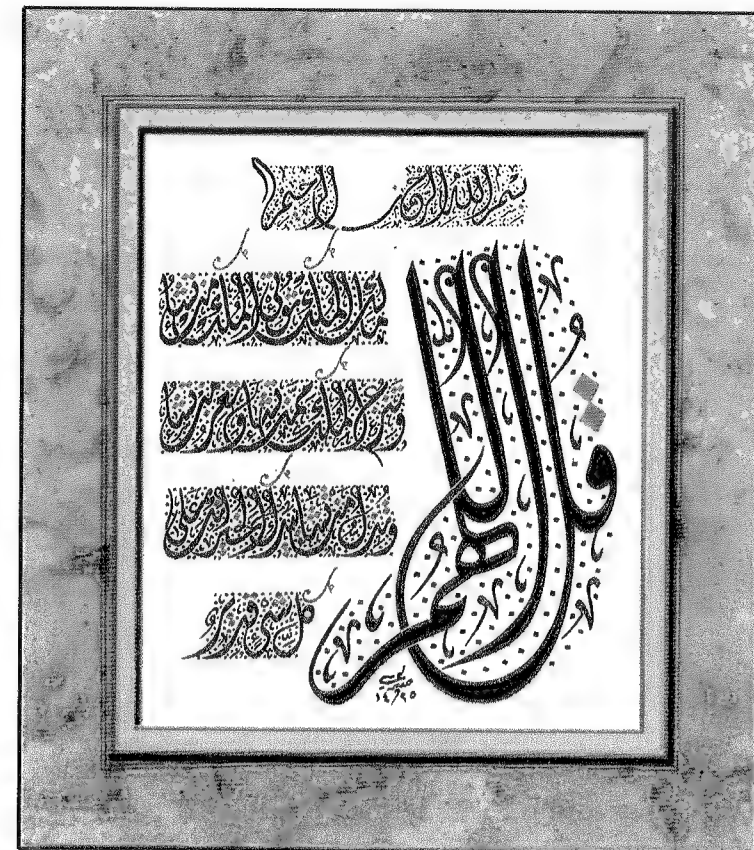 بسم الله الرحمن الرحيم
قل اللهم
مالك الملك تؤتي الملك من تشاء
وتنزع الملك ممن تشاء وتعز من تشاء
وتذل من تشاء بيدك الخير إنك على
كل شيء قدير
١٤٢٥